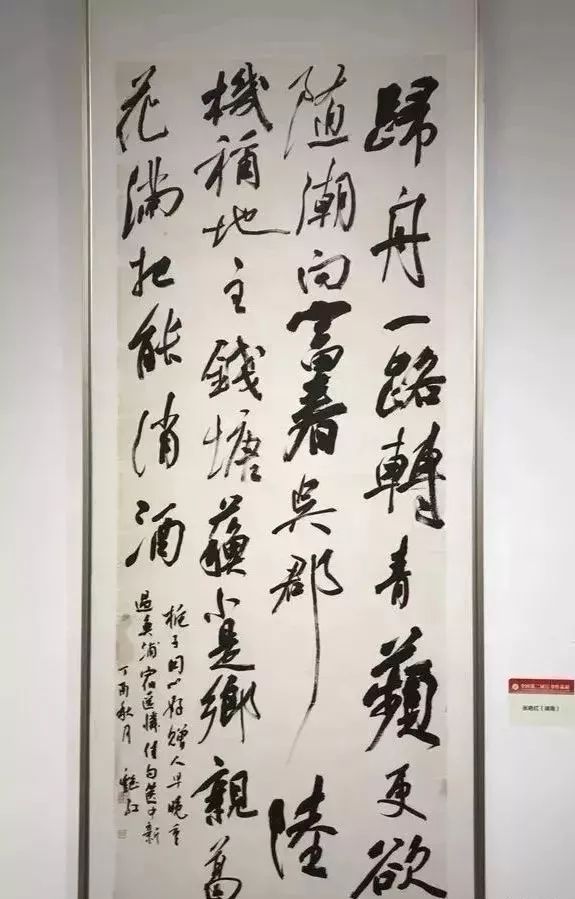 歸舟一路轉青蘋更欲
随潮向富春吳郡陸
機稱地主錢塘蘇小是鄉親葛
花滿把能消酒
栀子同心好贈人早晚重
過魚浦宿遥憐佳句篋中新
丁酉秋月